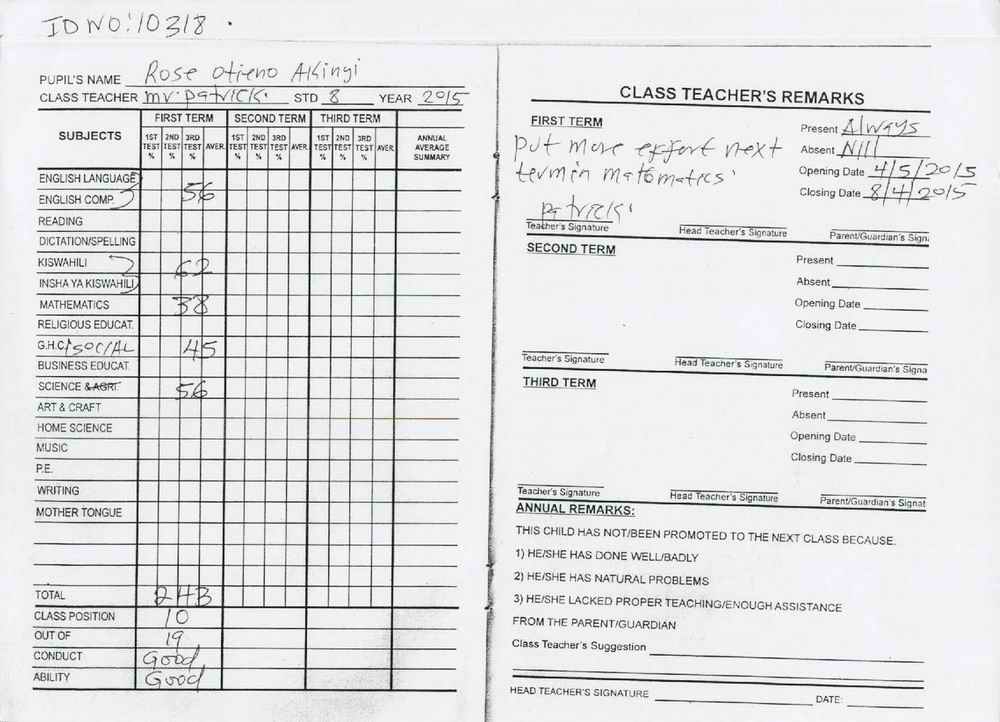 ID NO: 10318.
PUPIL'S NAME Rose Otieno Akinyi
CLASS TEACHER mr. Patrick. STD 8 YEAR 2015
SUBJECTS FIRST TERM SECOND TERM THIRD TERM
1ST TEST % 2ND TEST % 3RD TEST % AVER. 1ST TEST % 2ND TEST % 3RD TEST % AVER. 1ST TEST % 2ND TEST % 3RD TEST % AVER. ANNUAL AVERAGE SUMMARY
ENGLISH LANGUAGE
ENGLISH COMP. 56
READING
DICTATION/SPELLING
KISWAHILI 62
INSHA YA KISWAHILI
MATHEMATICS 38
RELIGIOUS EDUCAT.
G.H.C/SOCIAL 45
BUSINESS EDUCAT.
SCIENCE & AGRI 56
ART & CRAFT
HOME SCIENCE
MUSIC
P.E.
WRITING
MOTHER TONGUE
TOTAL 243
CLASS POSITION 10
OUT OF 19
CONDUCT Good
ABILITY Good
CLASS TEACHER'S REMARKS
FIRST TERM
Present Always
Absent Nill
Opening Date 4/5/2015
Closing Date 8/4/2015
Put more effort next
term in matomatics.
Patrick.
Teacher's Signature Head Teacher's Signature Parent/Guardian's Sign
SECOND TERM
Present
Absent
Opening Date
Closing Date
Teacher's Signature Head Teacher's Signature Parent/Guardian's Signa
THIRD TERM
Present
Absent
Opening Date
Closing Date
Teacher's Signature Head Teacher's Signature Parent/Guardian's Signat
ANNUAL REMARKS:
THIS CHILD HAS NOT/BEEN PROMOTED TO THE NEXT CLASS BECAUSE.
1) HE/SHE HAS DONE WELL/BADLY
2) HE/SHE HAS NATURAL PROBLEMS
3) HE/SHE LACKED PROPER TEACHING/ENOUGH ASSISTANCE
FROM THE PARENT/GUARDIAN
Class Teacher's Suggestion
HEAD TEACHER'S SIGNATURE DATE: